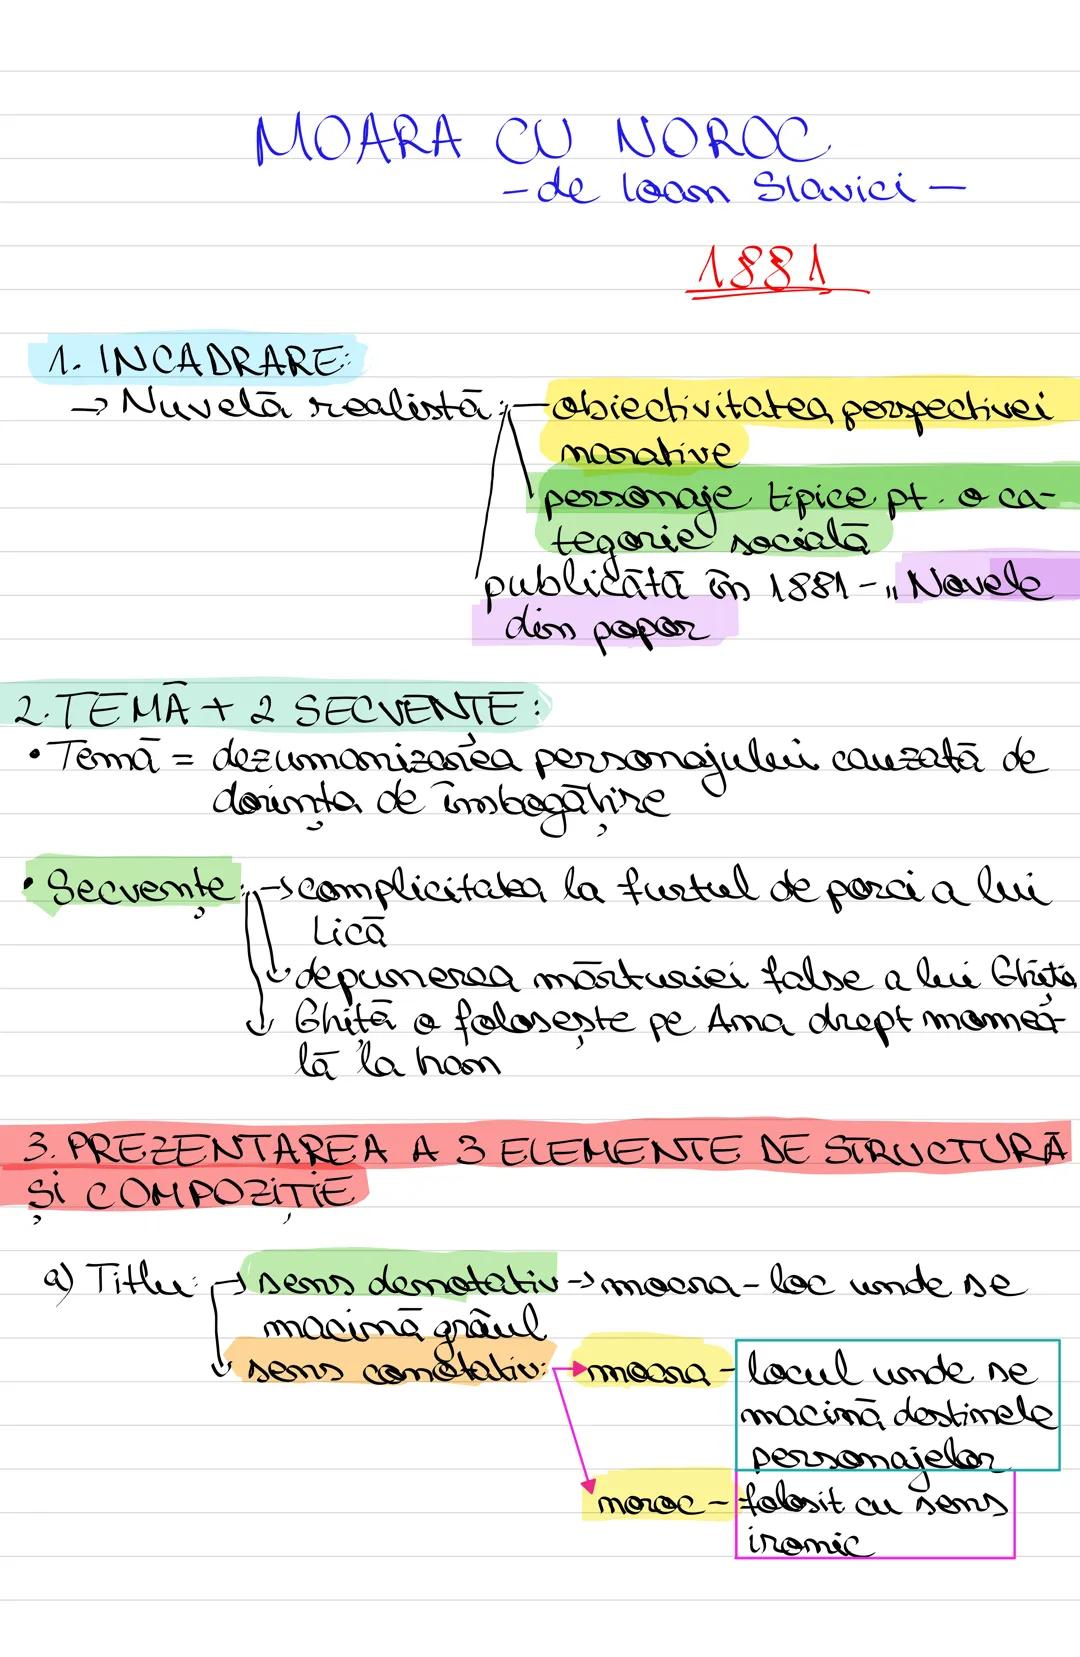 MOARA CU NOROC
- de Ioan Slavici -
1881
1. INCADRARE:
→ Nuvelă realistă: - obiectivitatea perspectivei
narative
personaje tipice pt. o ca-
tegorie socială
publicată în 1881 - „Novele
din popor
2. TEMĂ + 2 SECVENȚE:
• Temă = dezumanizarea personajului cauzată de
dorința de îmbogățire
• Secvențe: → complicitatea la furtul de porci a lui
Lică
depunerea mărturiei false a lui Ghiță
Ghiță o folosește pe Ana drept momea-
lă la han
3. PREZENTAREA A 3 ELEMENTE DE STRUCTURĂ
ȘI COMPOZIȚIE
a) Titlu: → sens denotativ → moara - loc unde se
macină grâul
sens conotativ: → moara - locul unde se
macină destinele
personajelor
noroc - folosit cu sens
ironic